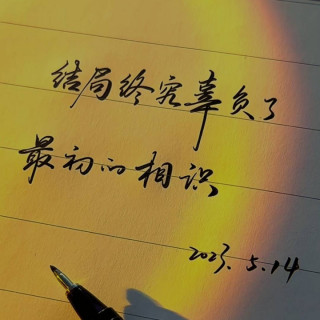 结局终究辜负了
最初的相识
2023.5.14